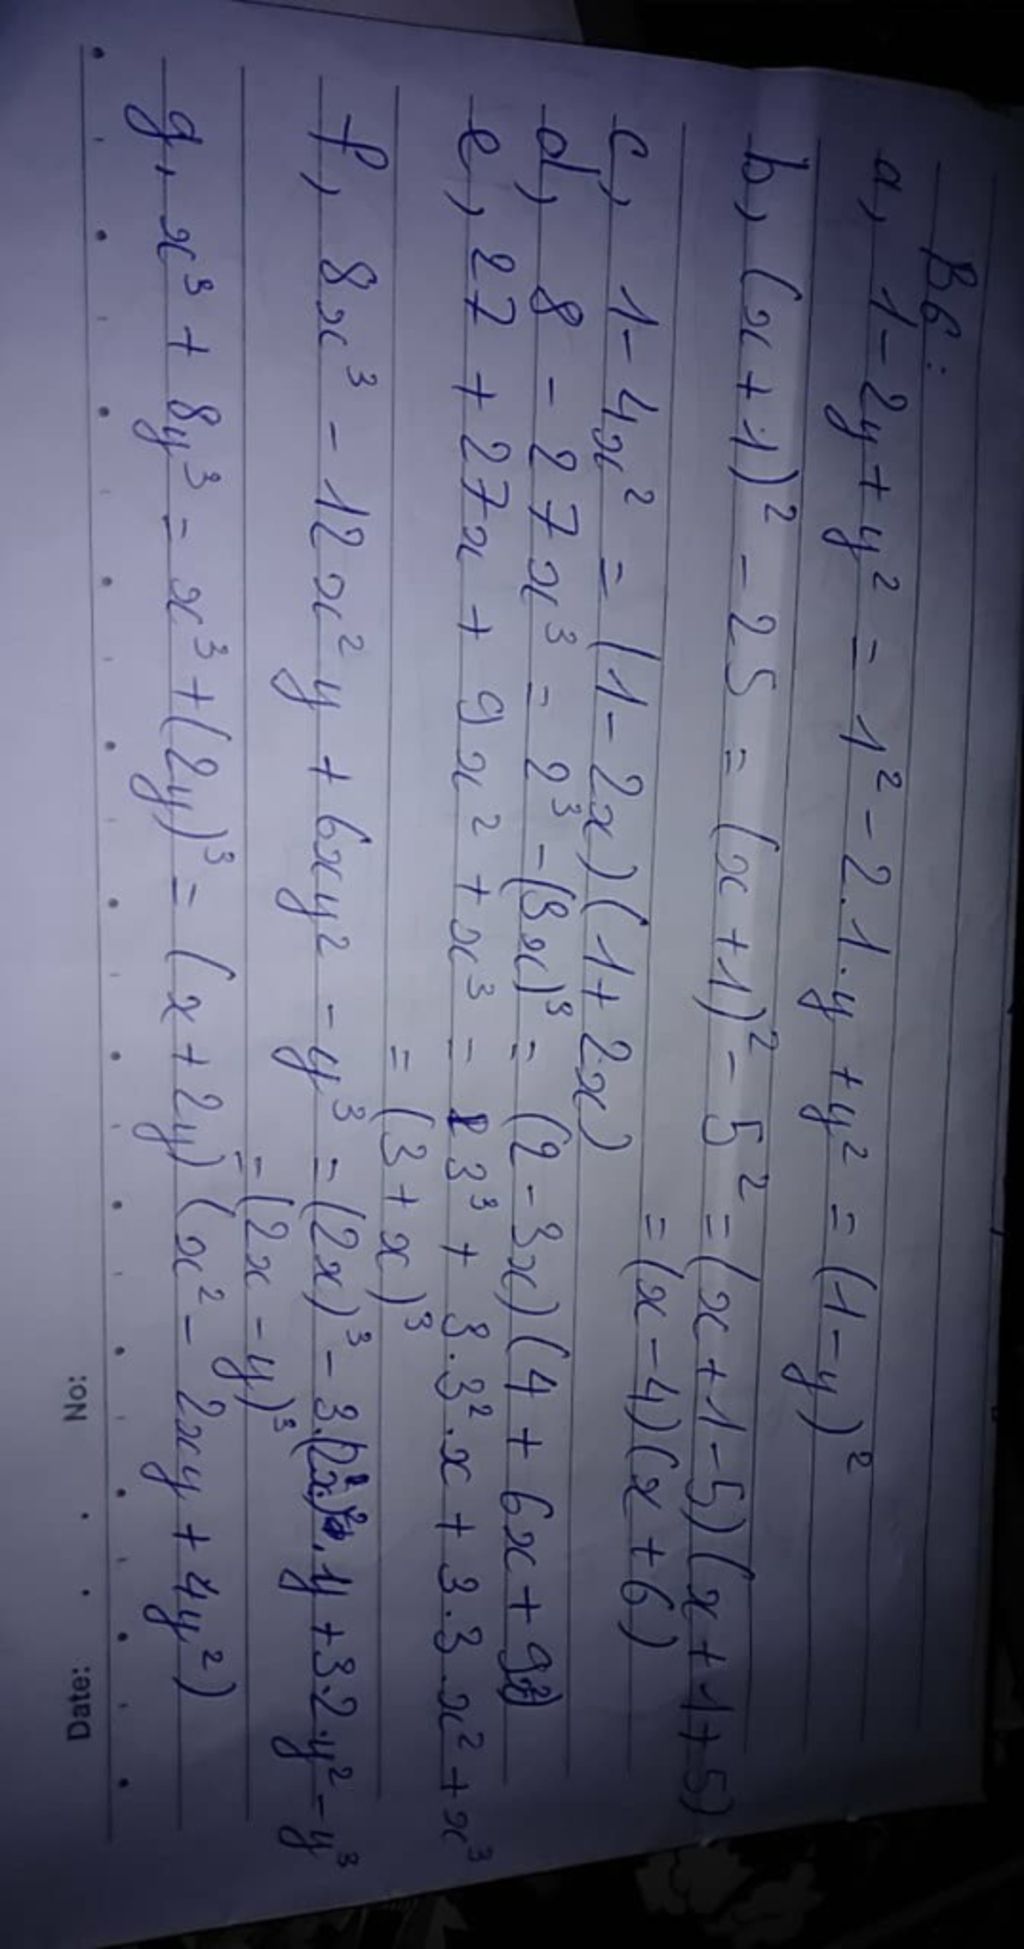 B6:
a, 1 - 2y + y² = 1² - 2.1.y + y² = (1 - y)²
b, (x + 1)² - 25 = (x + 1)² - 5² = (x + 1 - 5)(x + 1 + 5)
= (x - 4)(x + 6)
c, 1 - 4x² = (1 - 2x)(1 + 2x)
d, 8 - 27x³ = 2³ - (3x)³ = (2 - 3x)(4 + 6x + 9
e, 27 + 27x + 9x² + x³ = 3³ + 3.3².x + 3.3.x² + x³
= (3 + x)³
f, 8x³ - 12x²y + 6xy² - y³ = (2x)³ - 3.(2x)².y + 3.2.y² - y³
= (2x - y)³
g, x³ + 8y³ = x³ + (2y)³ = (x + 2y)(x² - 2xy + 4y²)
No:
Date: